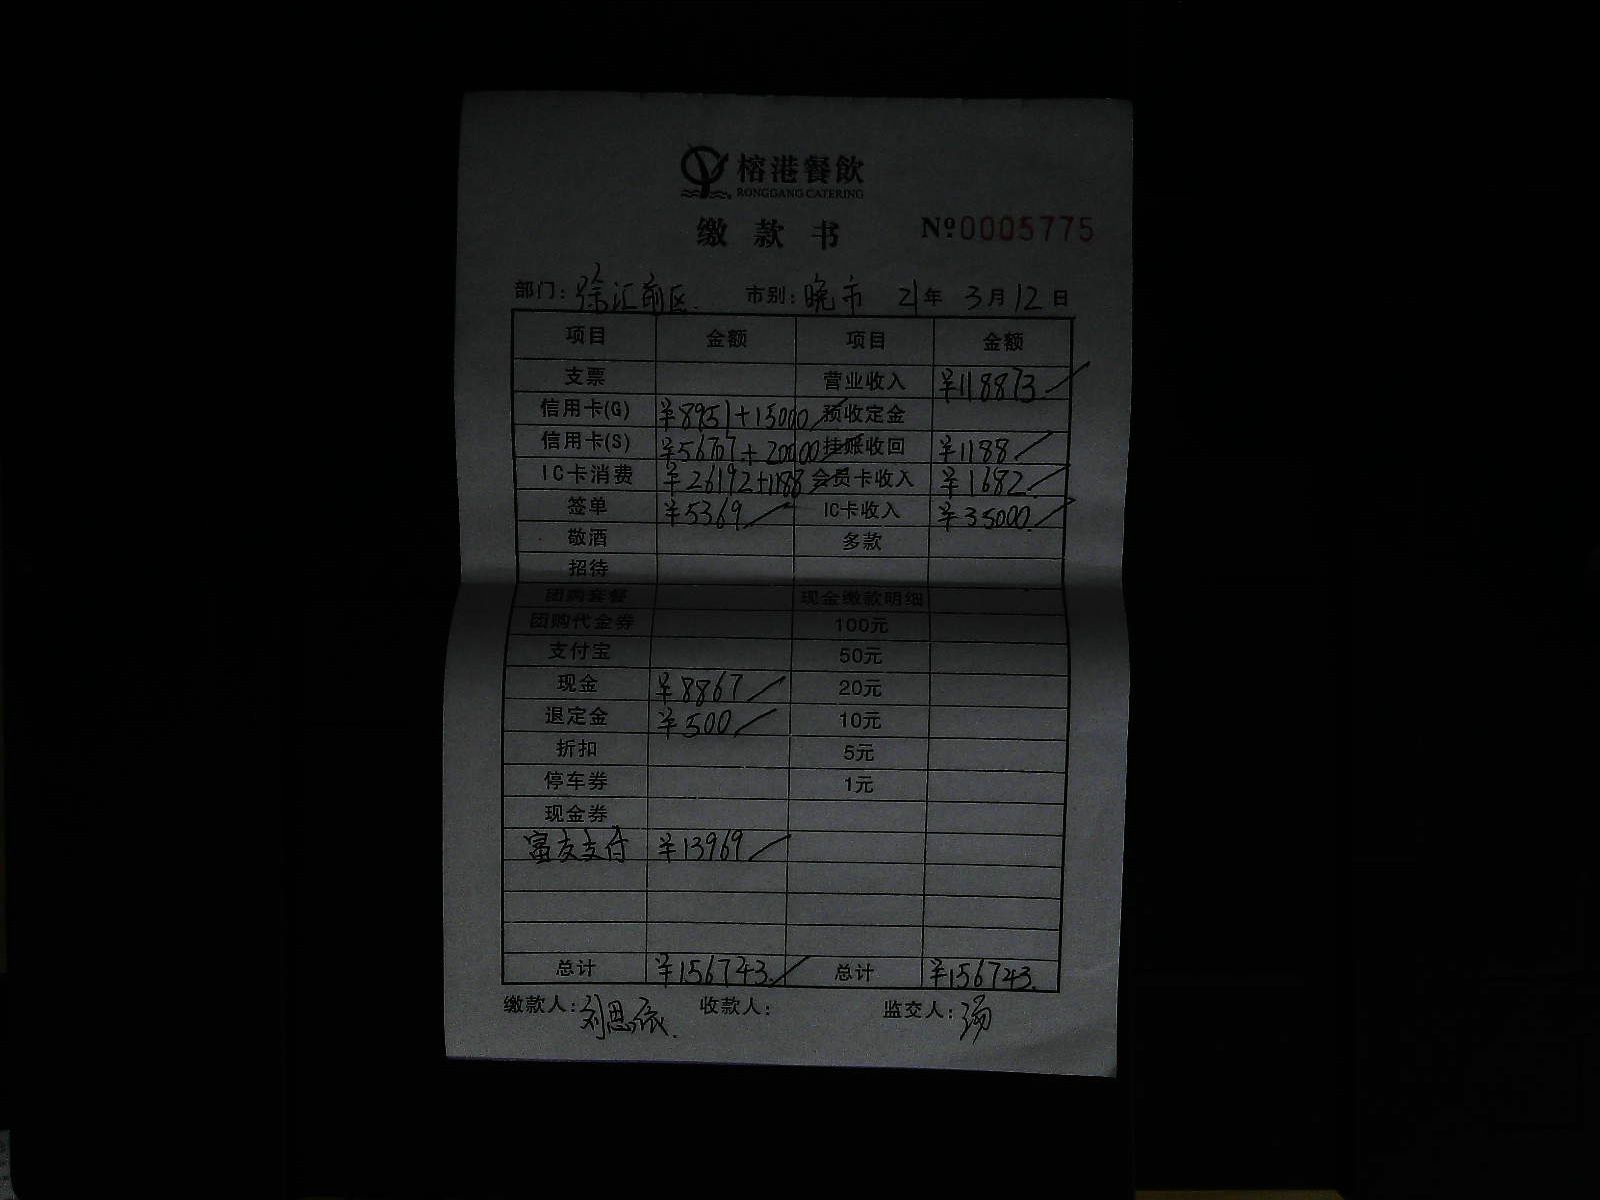 榕港餐飲
RONGGANG CATERING
缴款书 Nº 0005775
部门: 徐汇前区. 市别: 晚市 21年 3月12日
项目 金额 项目 金额
支票 营业收入 ¥118873.
信用卡(G) ¥8951+15000 预收定金
信用卡(S) ¥56707+20000 挂账收回 ¥1188
IC卡消费 ¥26192+1188 会员卡收入 ¥1682.
签单 ¥5369 IC卡收入 ¥35000.
敬酒 多款
招待
团购套餐 现金缴款明细
团购代金券 100元
支付宝 50元
现金 ¥8867 20元
退定金 ¥500 10元
折扣 5元
停车券 1元
现金券
富友支付 ¥13969
总计 ¥156743. 总计 ¥156743.
缴款人: 刘恩 收款人: 监交人: 汤